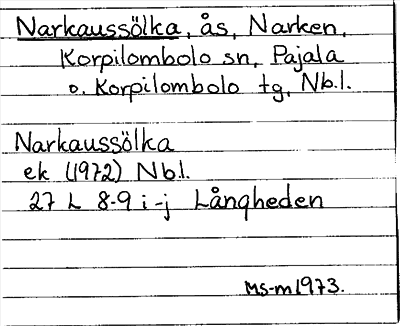 Narkaussölka, ås, Narken,
Korpilombolo sn, Pajala
o. Korpilombolo tg, Nb.l.
Narkaussölka
ek (1972) Nb.l.
27 L 8-9 i-j Långheden
MS-m1973.